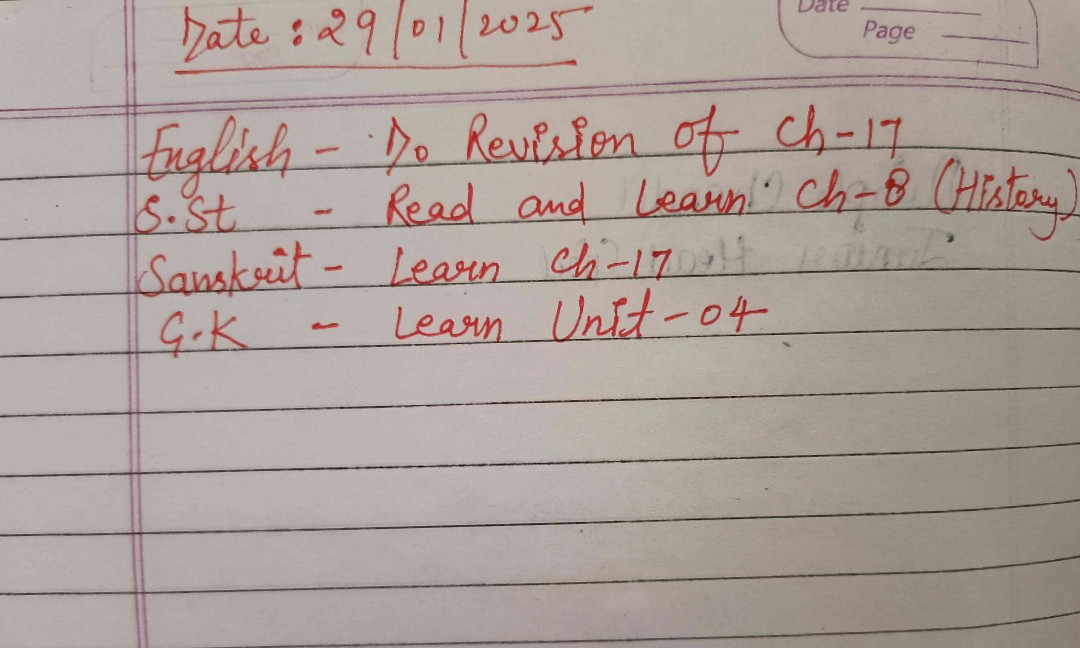 Date : 29/01/2025
Date
Page
English - Do Revision of Ch-17
S.St - Read and Learn Ch-8 (History)
Sanskrit - Learn Ch-17
G.K - Learn Unit-04